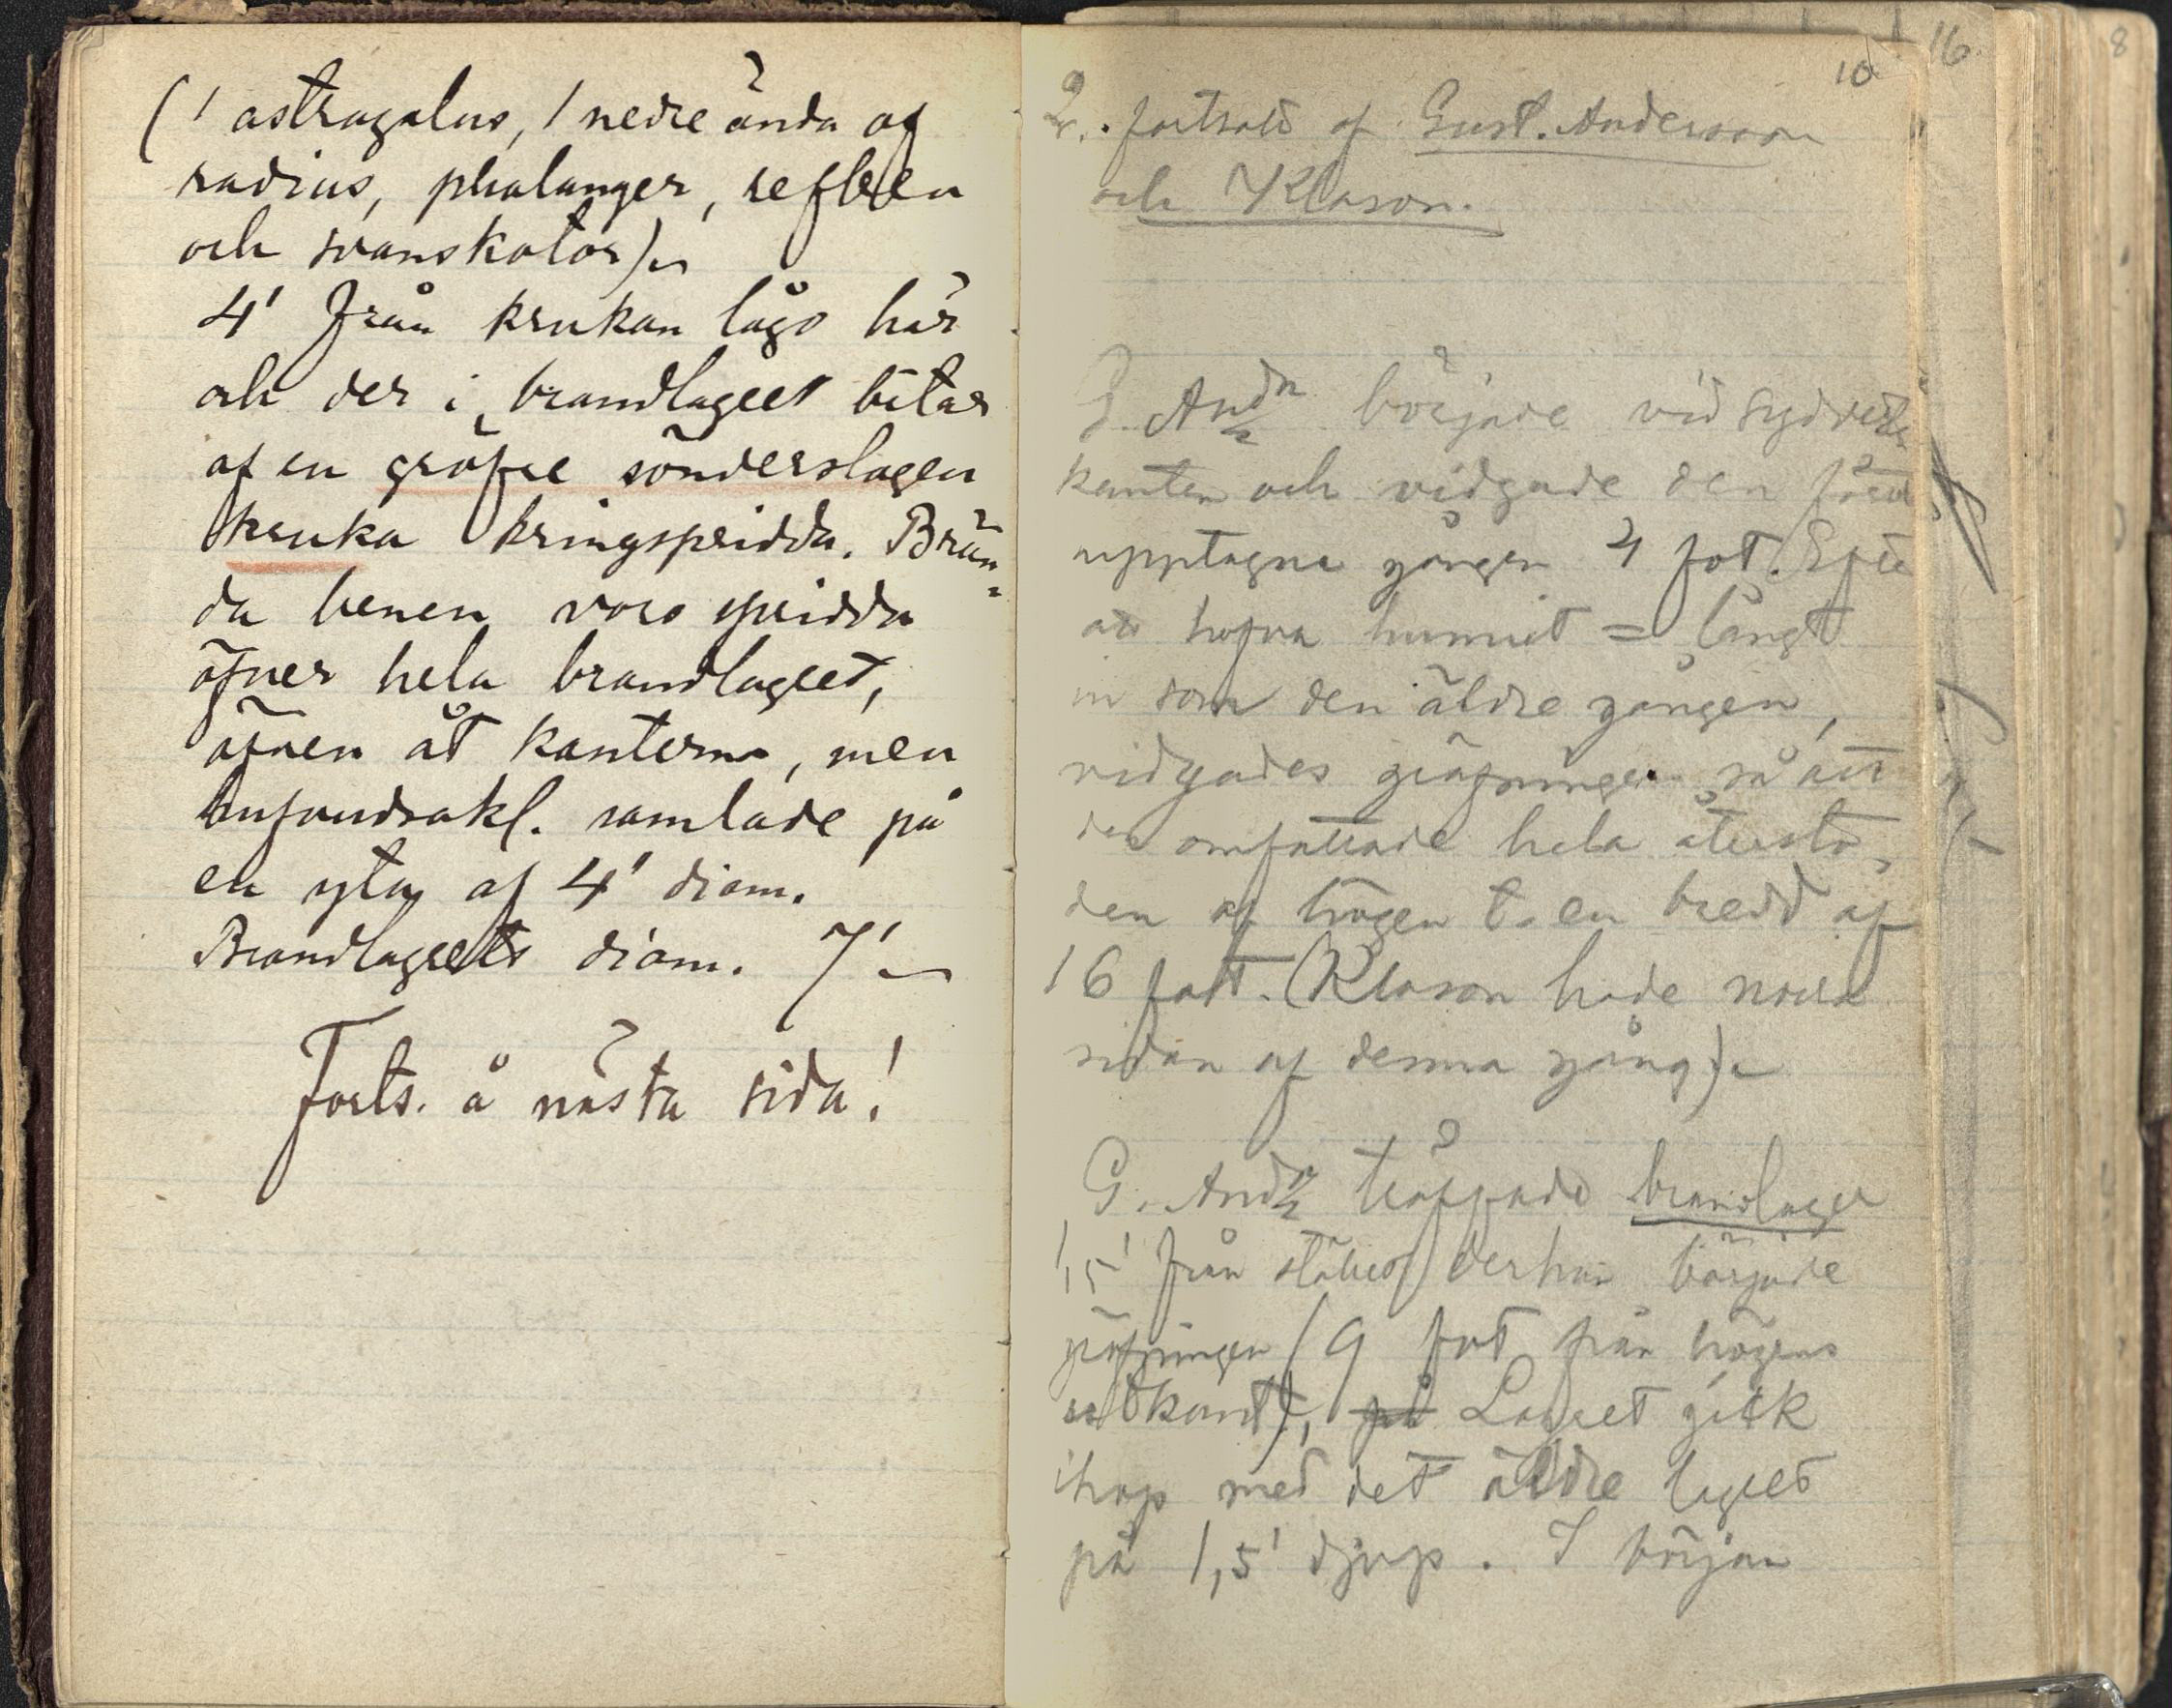 (1 astragalus, 1 nedre ända af
radius, phalanger, refben
och svanskotor).
4' från krukan lågo här
och der i brandlagret bitar
af en gröfre sönderslagen
kruka kringspridda. Brän-
da benen voro spridda
öfver hela brandlagret,
äfven åt kanterna, men
hufvudsakl. samlade på
en yta af 4' diam.
Brandlagrets diam. 7'
Forts. å nästa sida!
10
2. fortsatt af Gust. Andersson
och Klason.
G. Andn började vid sydvestra
kanten och vidgade den förut
upptagna gången 4 fot. Efter
att hafva hunnit = långt
in som den äldre gången,
vidgades gräfningen så att
den omfattade hela återsto-
den af högen t. en bredd af
16 fot. (Klason hade norra
sidan af denna gång).
G. Andn träffade brandlager
1,5' från stället der han började
gräfningen (9 fot från högens
utkant), på Lagret gick
ihop med det äldre lagret
på 1,5' djup. I början
16
8